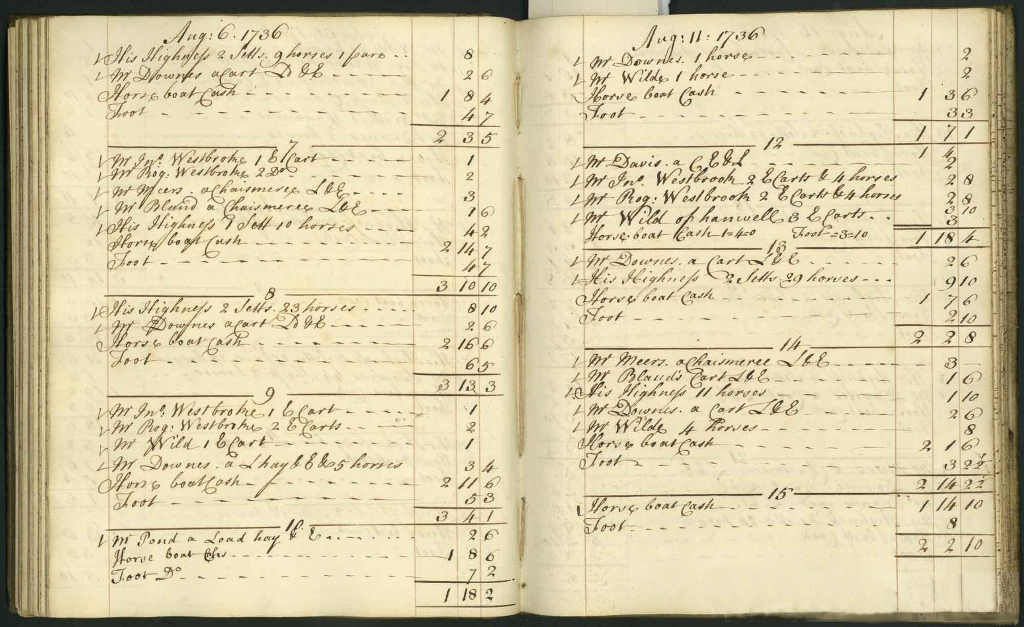 Aug: 6. 1736
His Highness 2 Setts. 9 horses 1 pare 8
Mr Downes a Cart Ld & E 2 6
Horse boat Cash 1 8 4
Foot 4 7
2 3 5
7
Mr Jno. Westbroke 1 E Cart 1
Mr Rog: Westbroke 2 Do 2
Mr Meers. a Chaismeree L&E 3
Mr Bland a Chaismeree L&E 1 6
His Highness 1 Sett 10 horses 4 2
Horse boat Cash 2 14 7
Foot 4 7
3 10 10
8
His Highness 2 Setts. 23 horses 8 10
Mr Downes a Cart Ld & E 2 6
Horse boat Cash 2 16 6
Foot 6 5
3 13 3
9
Mr Jno. Westbroke 1 E Cart 1
Mr Rog: Westbroke 2 E Carts 2
Mr Wild 1 E Cart 1
Mr Downes. a L hay & E & 5 horses 3 4
Horse boat Cash 2 11 6
Foot 5 3
3 4 1
10
Mr Pond a Load hay & E 2 6
Horse boat 1 8 6
Foot Do 7 2
1 18 2
Aug: 11: 1736
Mr Downes. 1 horse 2
Mr Wilde 1 horse 2
Horse boat Cash 1 3 6
Foot 3 3
1 7 1
12
Mr Davis. a C E&L
Mr Jno. Westbrook 2 E Carts & 4 horses 2 8
Mr Rog: Westbrook 2 E Carts & 4 horses 2 8
Mr Wild of hanwell 3 E Carts 3
Horse boat Cash 1=4=0 Foot=3=10 1 18 4
13
Mr Downes. a Cart L&E 2 6
His Highness 2 Setts 29 horses 9 10
Horse boat Cash 1 7 6
Foot 2 10
2 2 8
14
Mr Meers. a Chaismeree L&E 3
Mr Bland's Cart L&E 1 6
His Highness 11 horses 1 10
Mr Downes. a Cart L&E 2 6
Mr Wilde 4 horses 8
Horse boat Cash 2 1 6
Foot 3 2½
2 14 2½
15
Horse boat Cash 1 14 10
Foot 8
2 2 10